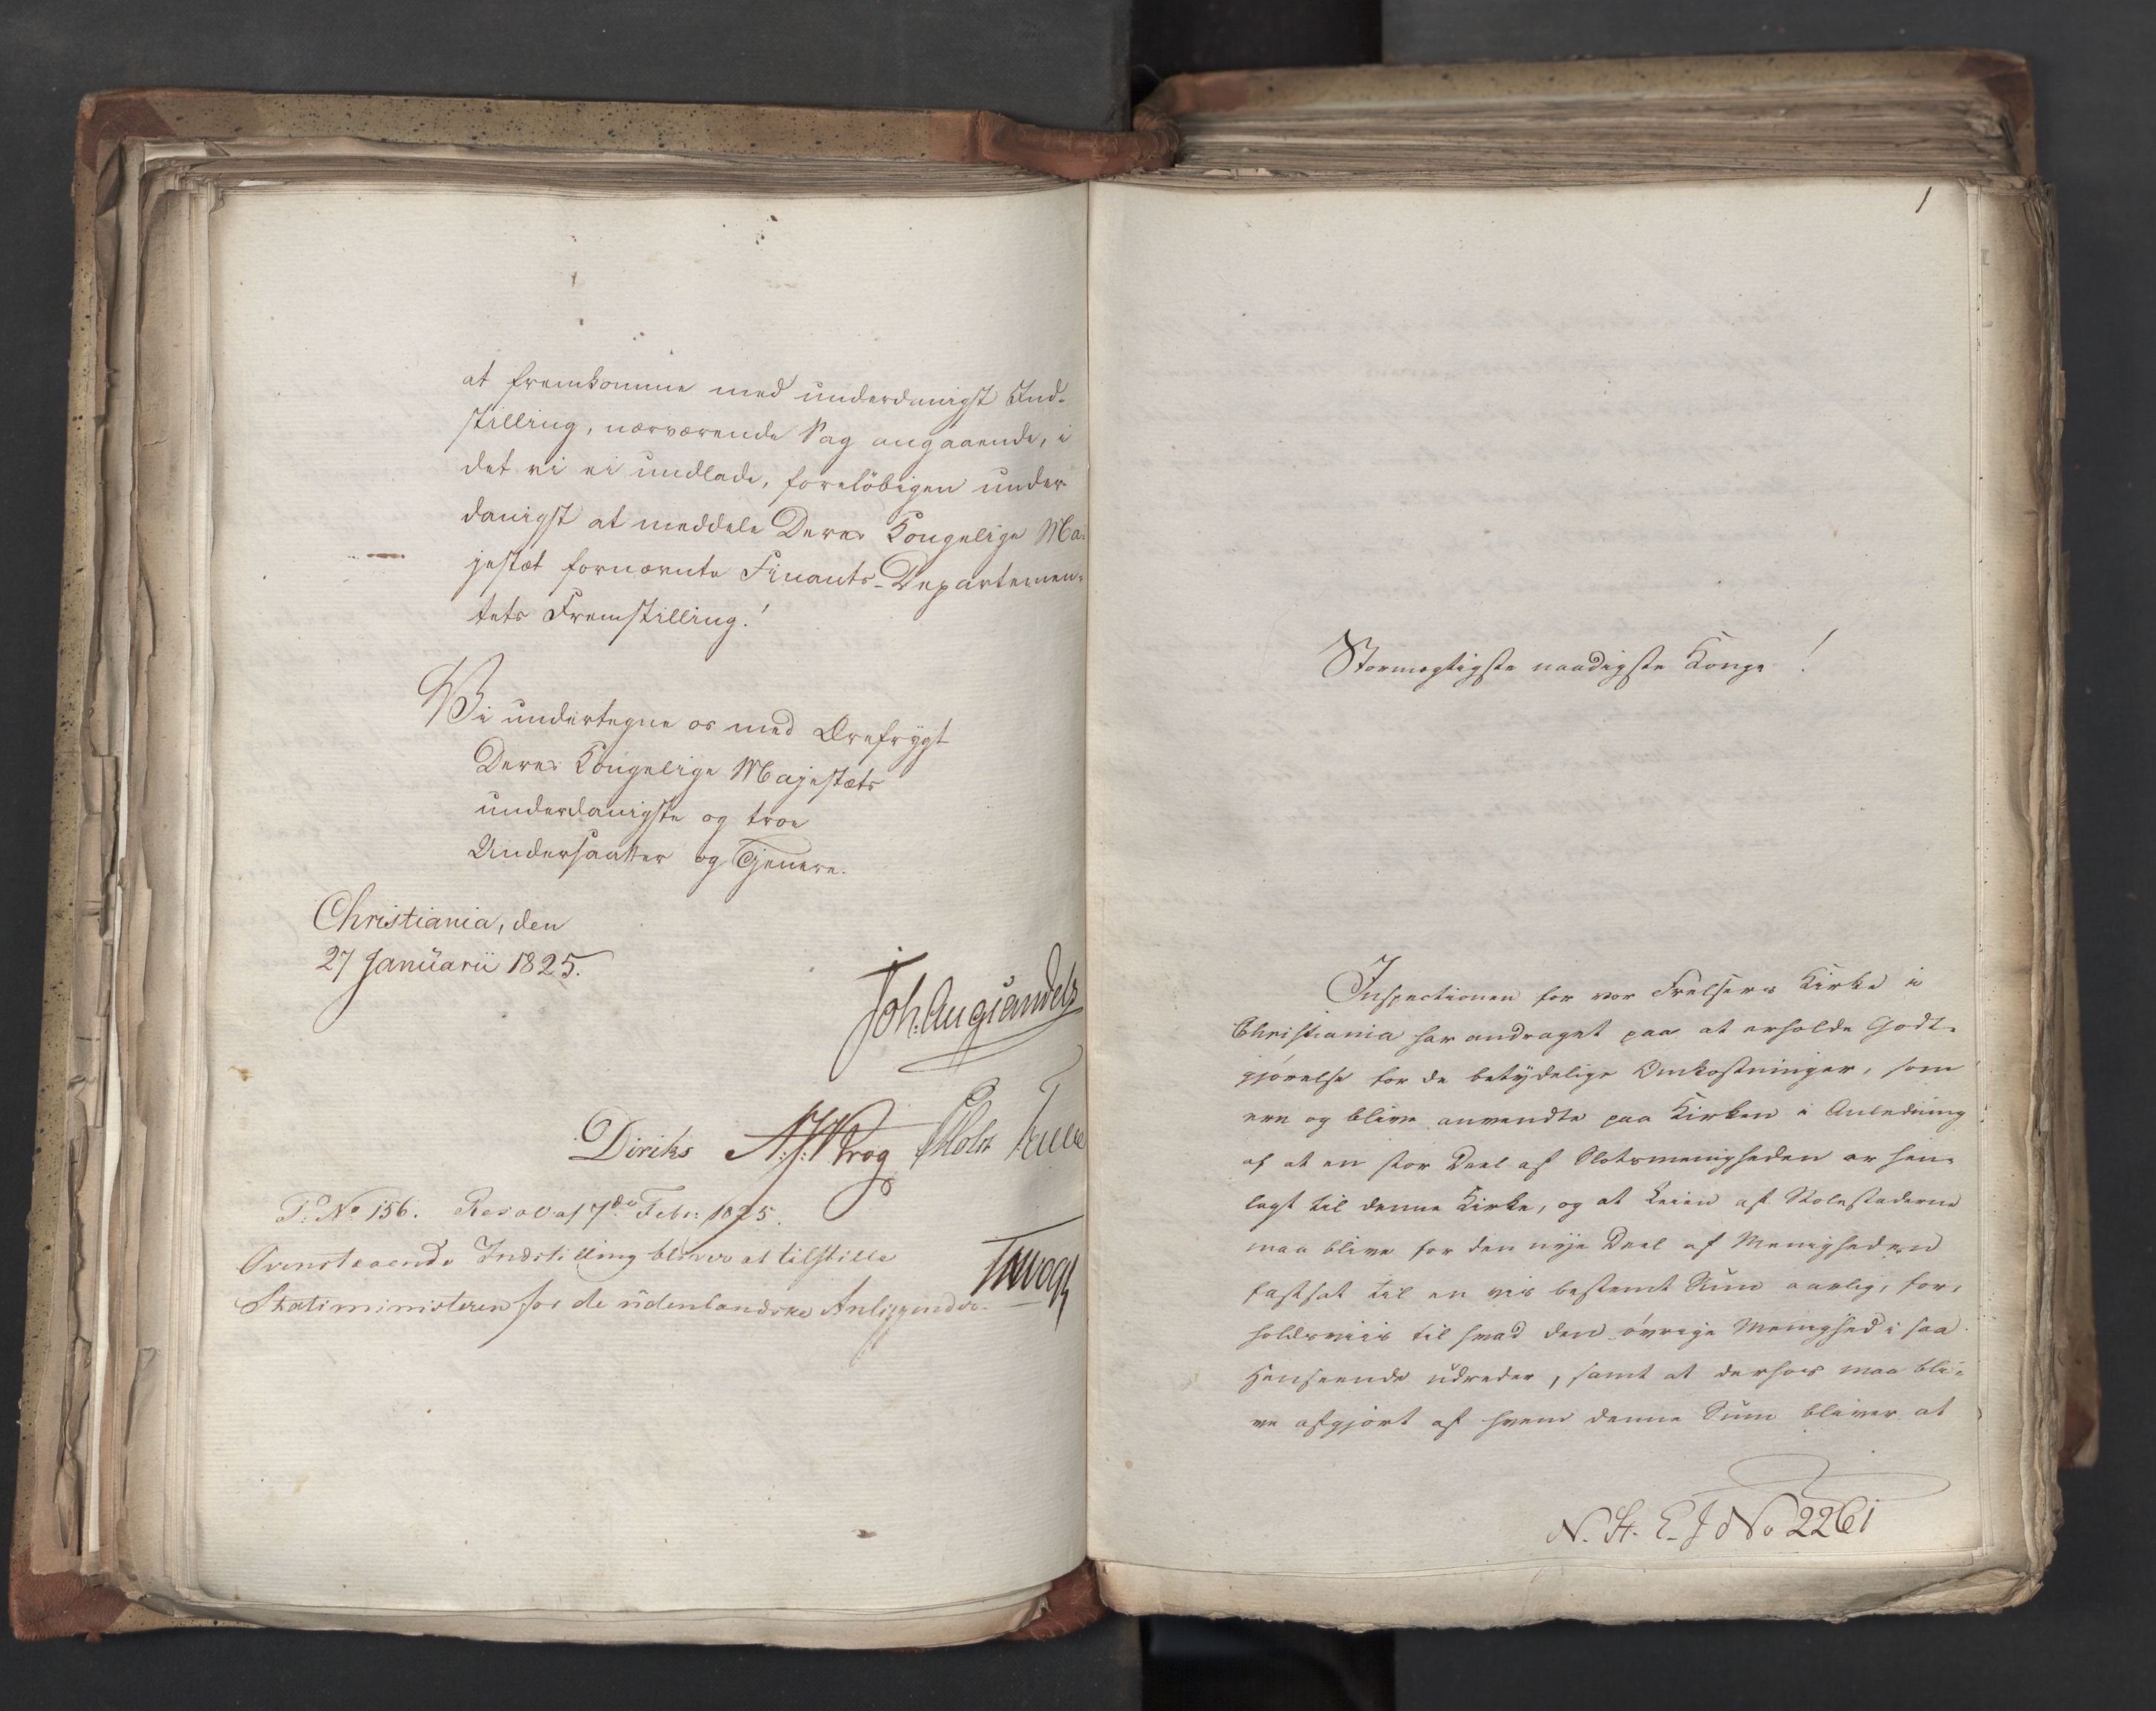 at fremkomme med underdanigst Ind-
stilling, nærværende Sag angaaende, i
det vi ei undlade, foreløbigen under-
danigst at meddele Deres Kongelige Ma-
jestæt fornævnte Finants-Departemen-
tets Fremstilling!
Vi undertegne os med Ærefrygt
Deres Kongelige Majestæts
underdanigste og troe
Undersaatter og Tjenere.
Christiania, den
27 Januarii 1825.
Joh. Aug Sandels
Diriks A. J. Krog Holst Treschow
P. No 156. Resol. af 7de Febr: 1825.
Ovenstaaende Indstilling bliver at tilstille
Statsministeren for de udenlandske Anliggender.
1
Stormægtigste naadigste Konge!
Inspectionen for vor Frelsers Kirke i
Christiania har andraget paa at erholde Godt-
gjørelse for de betydelige Omkostninger, som
ere og blive anvendte paa Kirken i Anledning
af at en stor Deel af Slotsmenigheden er hen-
lagt til denne Kirke, og at Leien af Stolestaderne
maa blive for den nye Deel af Menigheden
fastsat til en vis bestemt Sum aarlig, for-
holdsviis til hvad den øvrige Menighed i saa
Henseende udreder, samt at derhos maa bli-
ve afgjort af hvem denne Sum bliver at
N. St. E. J No 2261